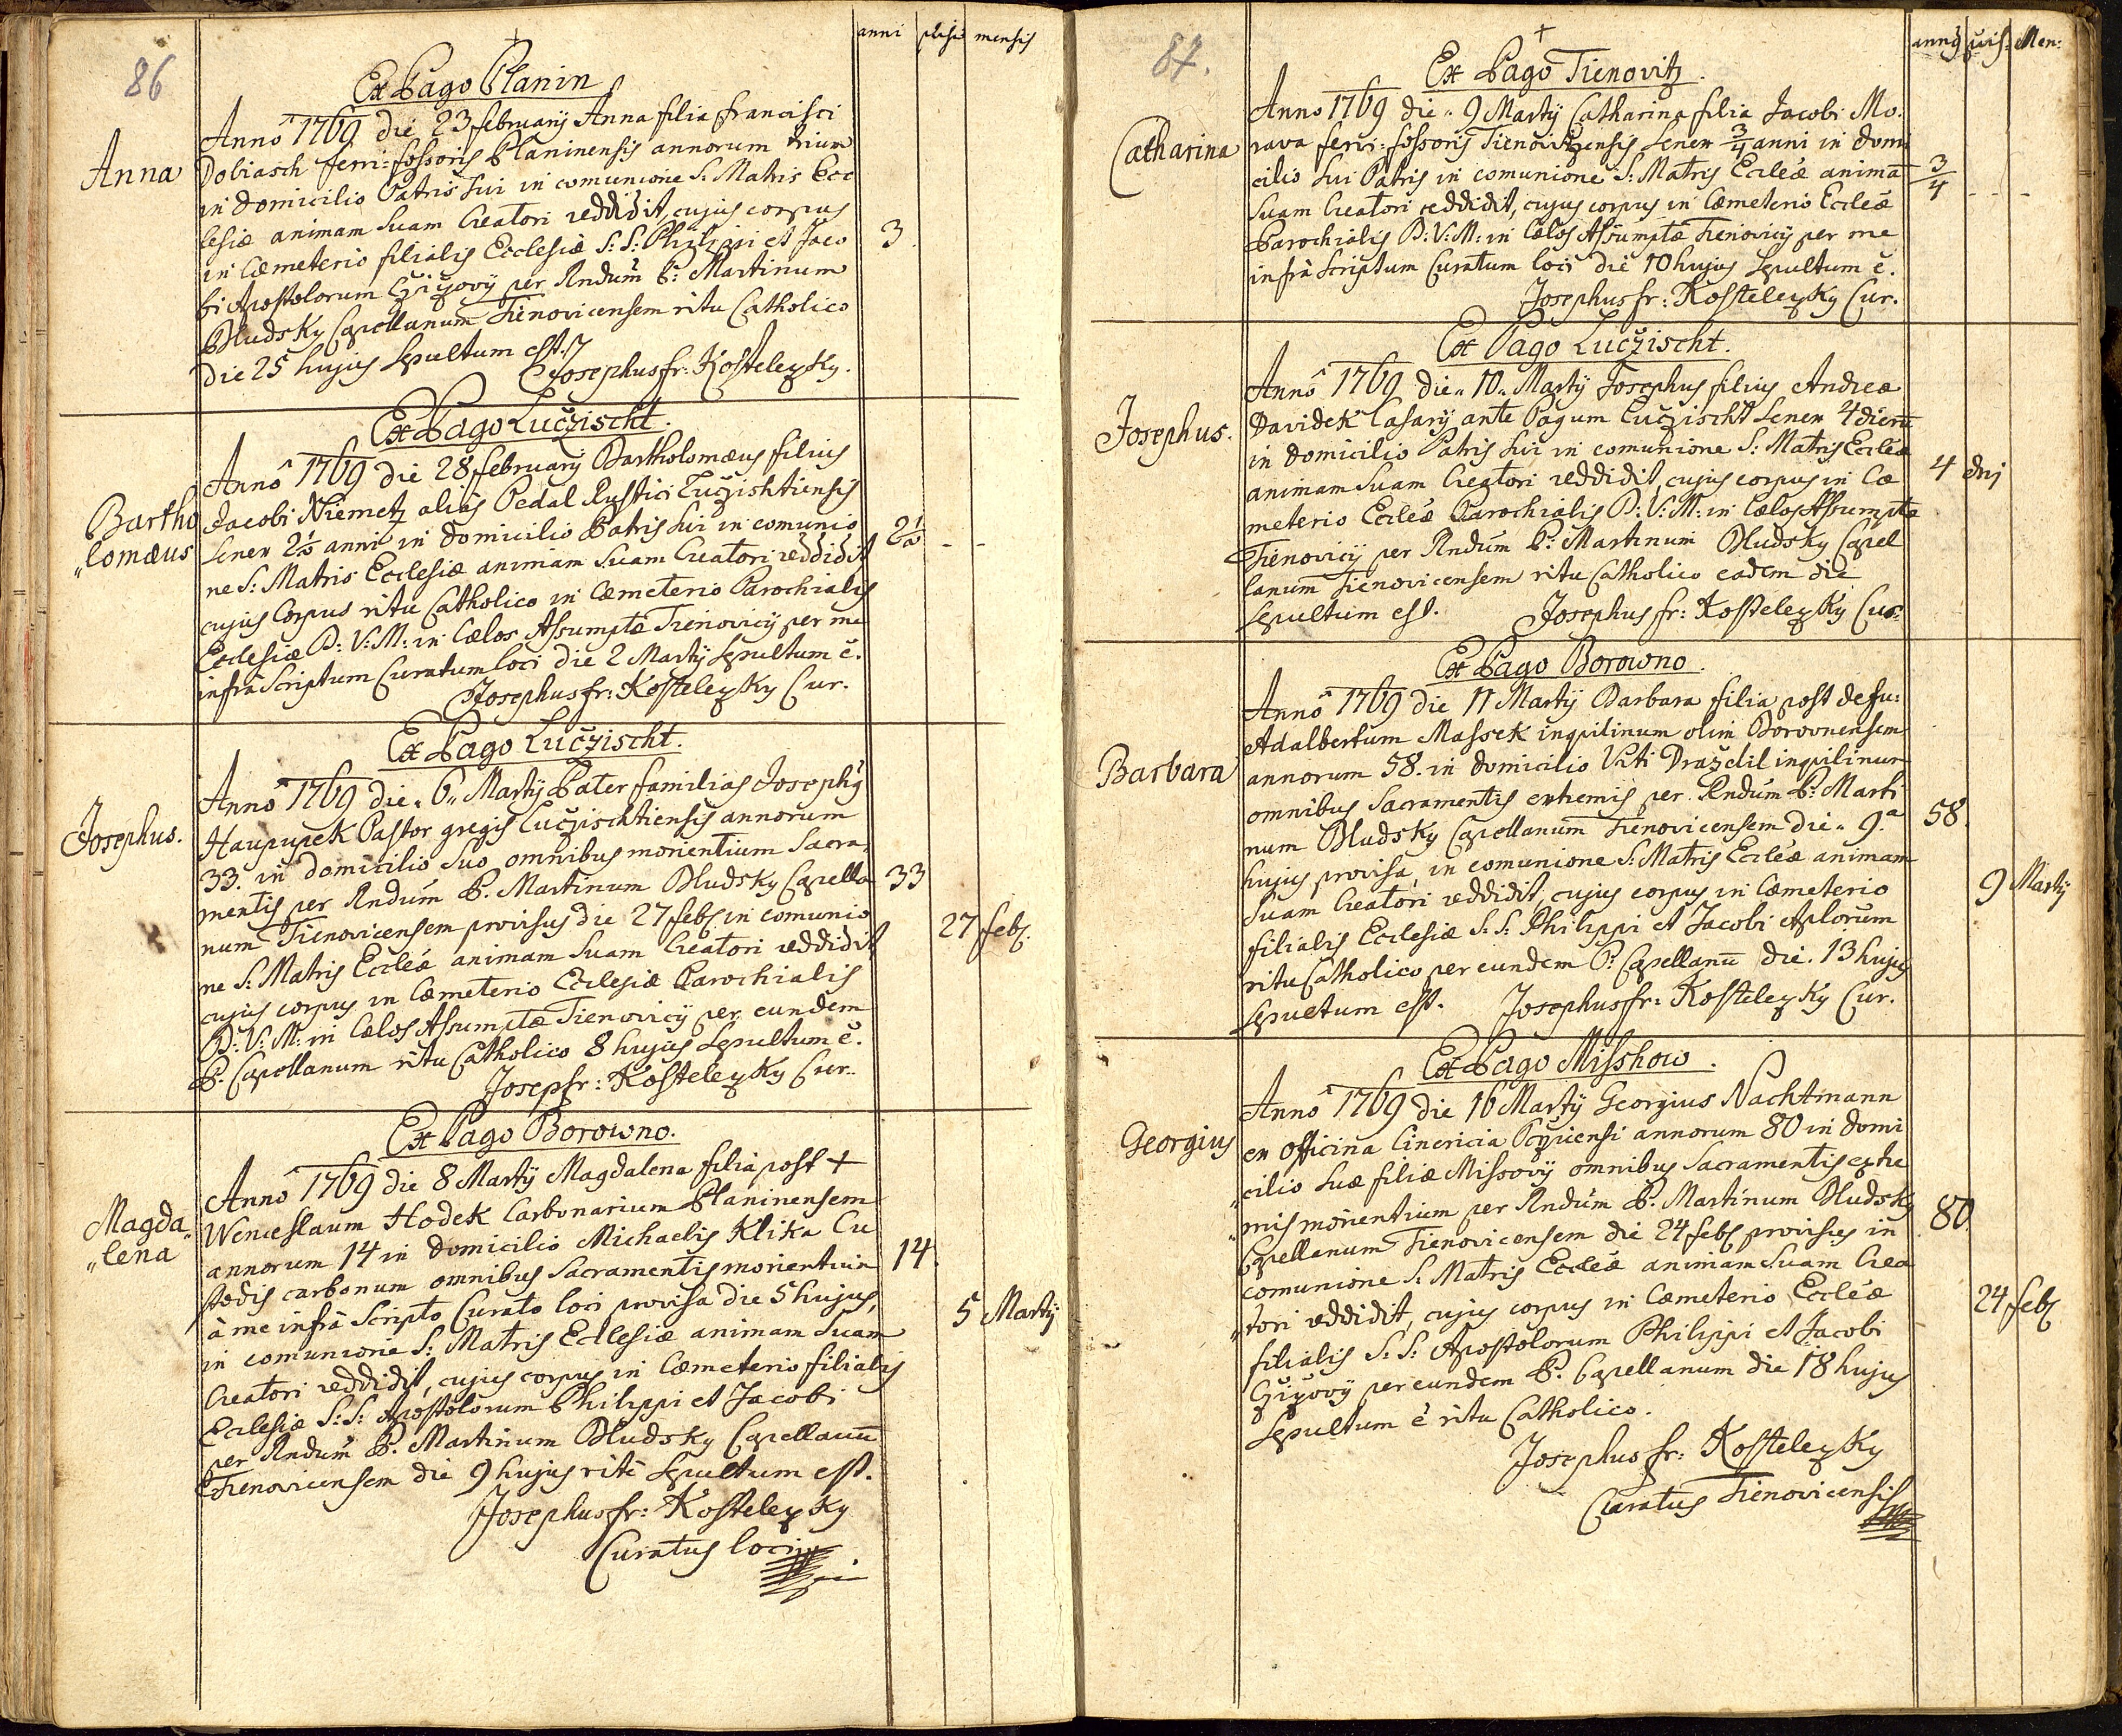 86
anni provis mensis
Ex Pago Planin
Anna
Annô 1769 die 23 februarij Anna filia francisci
Dobiasch ferri=fossoris Planinensis annorum trium
in domicilio Patris sui in comunione S: Matris Ecc
lesiæ animam suam Creatori reddidit, cujus corpus
in Cæmeterio filialis Ecclesiæ S: S: Philippi et Jaco
3
bi Apostolorum Čižovij per Rndum P: Martinum
Dludsky Capellanum Tienovicensem ritu Catholico
die 25 hujus sepultum est.
Josephus fr: Kostelezky.
Ex Pago Lučzischt.
Bartho
"lomæus
Annô 1769 die 28 february Bartholomæus filius
Jacobi Niemetz aliàs Pedal Rustici Lučzishtiensis
senex 2½ anni in domicilio Patris sui in comunio
2½ - -
ne S: Matris Ecclesiæ animam suam Creatori reddidit
cujus Corpus ritu Catholico in Cæmeterio Parochialis
Ecclesiæ B: V: M: in Cælos Assumptæ Tienovicij per me
infrà Scriptum Curatum loci die 2 Martij sepultum ē.
Josephus fr: Kostelezky Cur.
Ex Pago Lučzischt.
Josephus.
Annô 1769 die "6" Martij Pater familias Josephus
Haupupek Pastor gregis Lučzischtiensis annorum
33. in domicilio suo omnibus morientium Sacra,
mentis per Rndum P. Martinum Dludsky Capella
33
num Tienovicensem provisus die 27 febr in comunio
27 febr
ne S: Matris Eccleæ animam suam Creatori reddidit
cujus corpus in Cæmeterio Ecclesiæ Parochialis
B: V: M: in Cælos Assumptæ Tienovicij per eundem
P. Capellanum ritu Catholico 8 hujus sepultum ē.
Josep fr: Kostelezky Cur.
Ex Pago Borowno.
Magda"
"lena
Annô 1769 die 8 Martij Magdalena filia post +
Wenceslaum Hodek Carbonarium Planinensem
annorum 14 in domicilio Michaelis Klika Cu
14.
stodis carbonum omnibus Sacramentis morientium
à me infrà Scripto Curato loci provisa die 5 hujus,
5 Martij
in comunione S: Matris Ecclesiæ animam suam
Creatori reddidit, cujus corpus in Cæmeterio filialis
Ecclesiæ S: S: Apostolorum Philippi et Jacobi
per Rndum P. Martinum Dludsky Capellanū
Tienovicensem die 9 hujus ritè sepultum est.
Josephus fr: Kostelezky
Curatus loci
87.
annj pvis: Men:
Ex Pago Tienovitz.
Catharina
Anno 1769 die "9 Martij Catharina filia Jacobi Mo.
rava ferri=fossoris Tienovitzensis senex 3/4 anni in domi
cilio sui Patris in comunione S: Matris Eccleæ animā
3/4 - -
suam Creatori reddidit, cujus corpus in Cæmeterio Eccleæ
Parochialis B: V: M: in Cælos Assumptæ Tienovicij per me
infrà scriptum Curatum loci die 10 hujus sepultum ē.
Josephus fr: Kostelezky Cur.
Ex Pago Lučzischt.
Josephus.
Annô 1769 die "10" Martij Josephus filius Andreæ
Davidek Casarij ante Pagum Lučzischt senex 4 dierū
in domicilio Patris sui in comunione S: Matris Eccleæ
animam suam Creatori reddidit, cujus corpus in Cæ
4 dnj
meterio Eccleæ Parochialis B: V: M: in Cælos Assumptæ
Tienovicij per Rndum P: Martinum Dludsky Capel
lanum Tienovicensem ritu Catholico eadem die
sepultum est. Josephus fr: Kostelezky Cur.
Ex Pago Borowno.
Barbara
Annô 1769 die 11 Martij Barbara filia post defu:
Adalbertum Massek inquilinum olim Borovnensem
annorum 58. in domicilio Viti Draždil inquilinus
omnibus Sacramentis extremis per Rndum P: Marti
58.
num Dludsky Capellanum Tienovicensem die "9.a
hujus provisa, in comunione S: Matris Eccleæ animam
9 Martij
suam Creatori reddidit, cujus corpus in Cæmeterio
filialis Ecclesiæ S: S: Philippi et Jacobi Aplorum
ritu Catholico per eundem P. Capellanū die. 13 hujus
sepultum est. Josephus fr: Kostelezky Cur.
Ex Pago Misshow.
Georgius
Annô 1769 die 16 Martij Georgius Nachtmann
ex officina Cinericia Pcziicensi annorum 80 in domi
"cilio suæ filiæ Missovij omnibus Sacramentis extre
"mis morientium per Rndum P. Martinum Dludsky
80
Capellanum Tienovicensem die 24 febr provisus in
comunione S: Matris Eccleæ animam suam Crea
"tori reddidit, cujus corpus in Cæmeterio Eccleæ
24 febr
filialis S: S: Apostolorum Philippi et Jacobi
Čižovij per eundem P. Capellanum die 18 hujus
sepultum ē ritu Catholico.
Josephus fr: Kostelezky
Curatus Tienovicensis